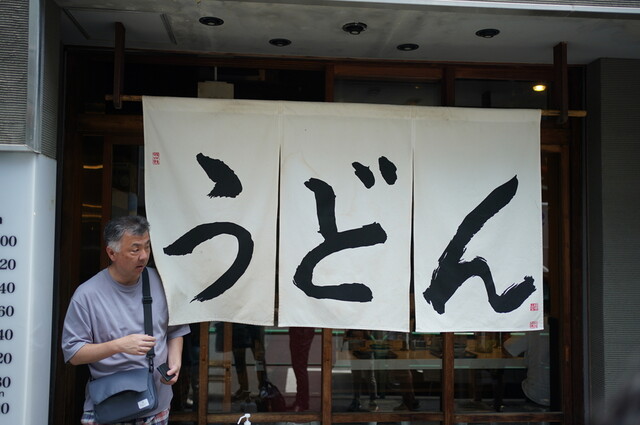 うどん
00
20
40
60
40
20
80
0